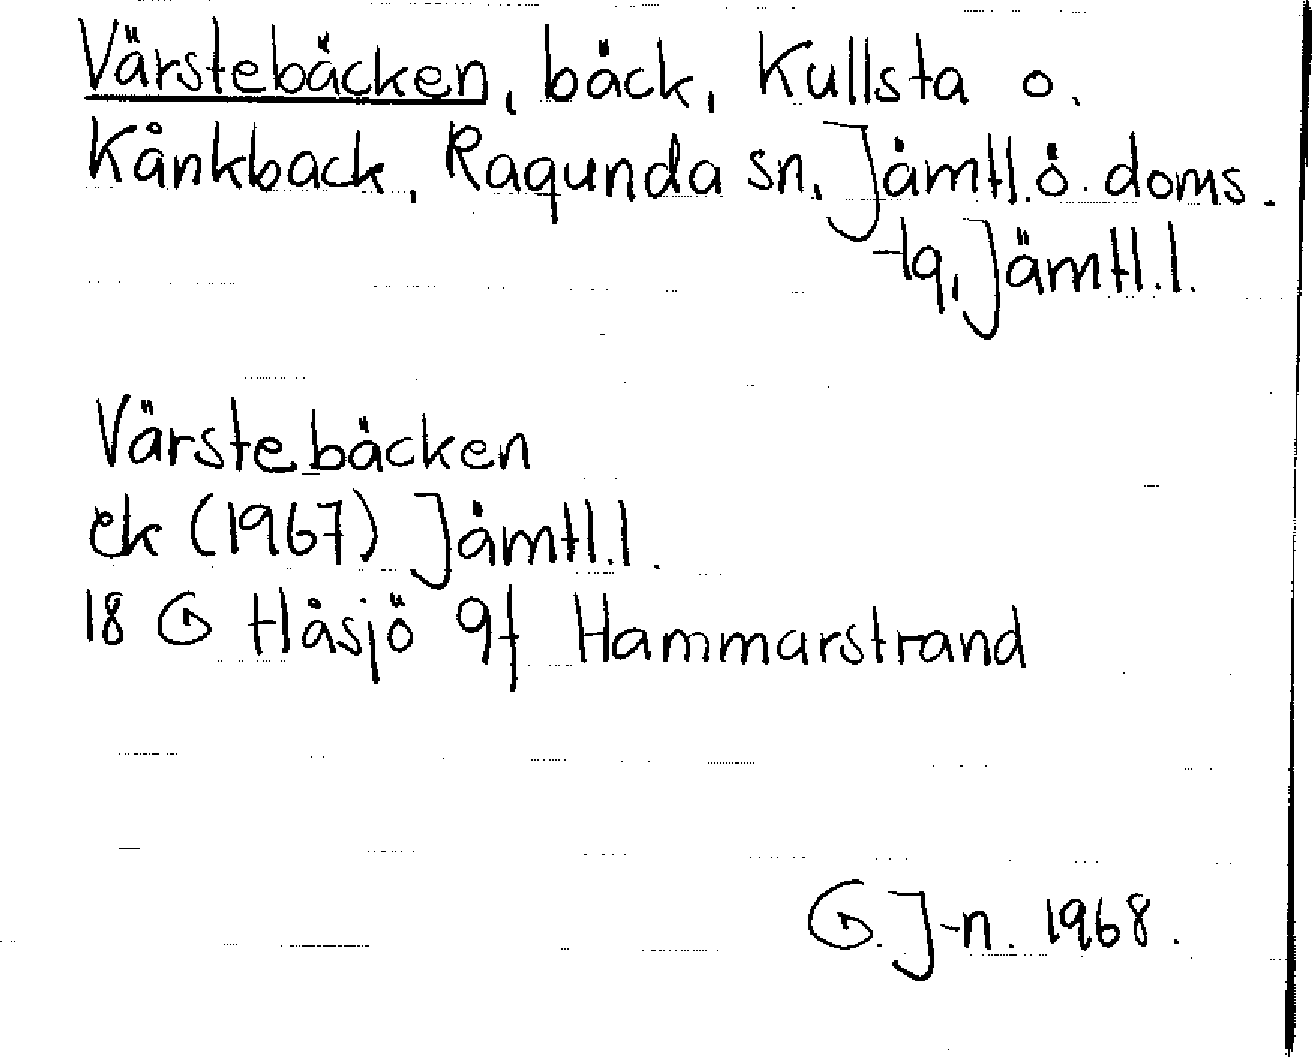 Värstebäcken, bäck, Kullsta o.
Kånkback, Ragunda sn, Jämtl.ö. doms.
-lg, Jämtl.l.
Värstebäcken
ek (1967) Jämtl.l.
18 G Håsjö 9f Hammarstrand
G. J-n. 1968.